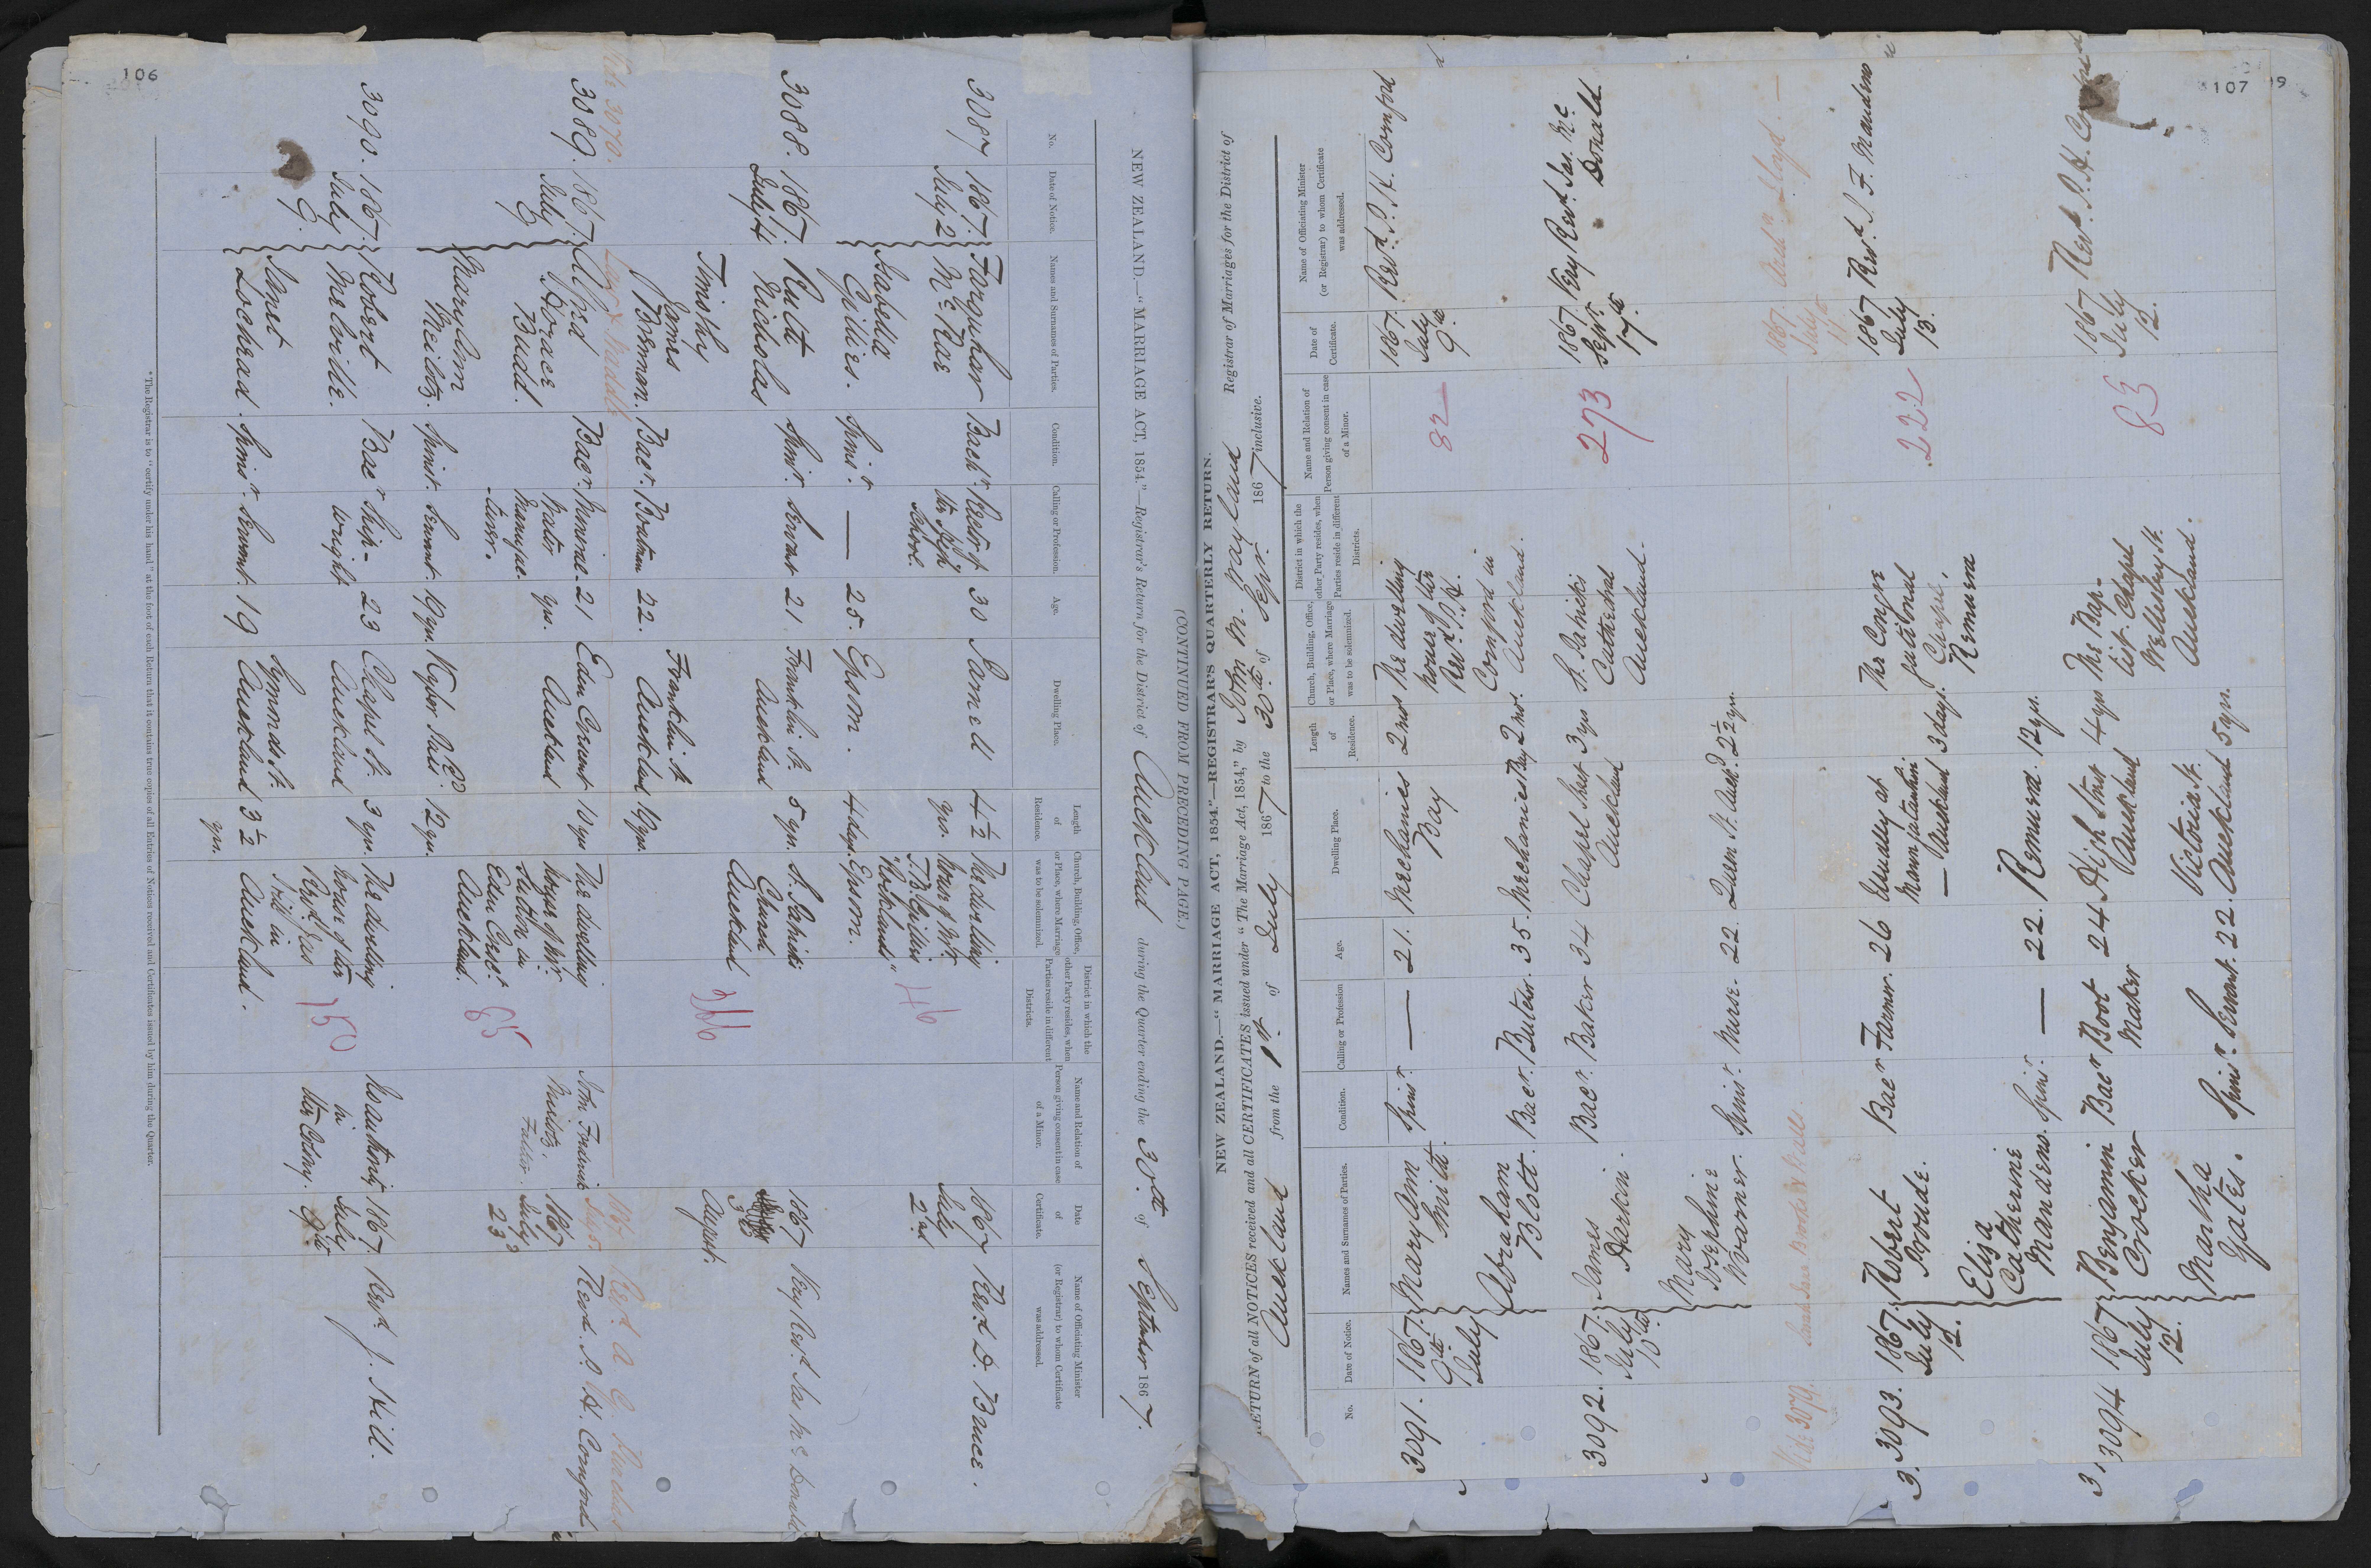 106
NEW ZEALAND.—"MARRIAGE ACT, 1854."—Registrar's Return for the District of Auckland during the Quarter ending the 30th of September 1867.
(CONTINUED FROM PRECEDING PAGE.)
No.
Date of Notice.
Names and Surnames of Parties.
Condition.
Calling or Profession.
Age.
Dwelling Place.
Length of Residence.
Church, Building, Office, or Place, where Marriage was to be solemnized.
District in which the other Party resides, when Parties reside in different Districts.
Name and Relation of Person giving consent in case of a Minor.
Date of Certificate.
Name of Officiating Minister (or Registrar) to whom Certificate was addressed.
3087 1867. July 2
Farquhar McRae Bachr. Rector of the High School. 30 Parnell 4½ yrs. The dwelling house of Mr. T.B. Gillies "Rockland" Epsom.
Isabella Gillies. Spinsr. — 25. Epsom. 4 days.
46
1867 July 2nd Revd. D. Bruce.
3088. 1867. July 4
Ruth Nicholas Spinr. Servant 21 Franklin St. Auckland 5 yrs. St. Patricks Church Auckland
Timothy James Brennan. Bacr. Boatman 22. Franklin St Auckland 19 yrs.
266
1867 August. Very Revd. Jas McDonald
Vide 3070. July 5. Revd. A. G.
3089. 1867. July 6
Alfred Horace Budd. Bacr. Mineral Water Manufacturer. 21 yrs. Eden Crescent Auckland 10 yrs The dwelling house of Mr. Sutton in Eden Cresct. Auckland.
Mary Ann Neilotz. Spinst. Servant. 19 yrs. Kyber Pass Rd 12 yrs.
85
John Frederick Neilotz, Father.
1867 July 23d Revd. P. H. Cornford
3090. 1867. July 9.
Robert Melville. Bacr Ship-wright 23 Chapel St. Auckland 3 yrs. The dwelling house of the Revd. Jas Hill in Auckland.
Janet Lochead. Spinsr. Servant. 19 Symonds St. Auckland 3½ yrs.
150
No authority in the Colony.
1867. July 9th Revd. J. Hill.
*The Registrar is to "certify under his hand" at the foot of each Return that it contains true copies of all Entries of Notices received and Certificates issued by him during the Quarter.
107
NEW ZEALAND.—"MARRIAGE ACT, 1854."—REGISTRAR'S QUARTERLY RETURN.
RETURN of all NOTICES received and all CERTIFICATES issued under "The Marriage Act, 1854," by John M. Wayland Registrar of Marriages for the District of
Auckland from the 1st. of July 1867 to the 30th of Sepr. 1867 inclusive.
No.
Date of Notice.
Names and Surnames of Parties.
Condition.
Calling or Profession
Age.
Dwelling Place.
Length of Residence.
Church, Building, Office, or Place, where Marriage was to be solemnized.
District in which the other Party resides, when Parties reside in different Districts.
Name and Relation of Person giving consent in case of a Minor.
Date of Certificate.
Name of Officiating Minister (or Registrar) to whom Certificate was addressed.
3091. 1867. 9th July
Mary Ann Smith. Spinsr. — 21. Mechanics Bay 2 mos The dwelling house of the Revd. P. H. Cornford in Auckland.
Abraham Blott. Bacr. Butcher. 35. Mechanics Bay 2 mos.
82
1867. July 9th Revd. P. H. Cornford
3092. 1867. July 10th
James Harkin. Bacr. Baker 34 Chapel Street Auckland 3 yrs St. Patricks Cathedral Auckland.
Mary Josephine Warner. Spinsr. Nurse. 22. Queen St. Auckd. 2½ yrs.
273
1867. Sepr. 17th. Very Revd. Jas. Mc Donald.
Vide 3079. Sarah Jane
1867. July Lloyd.—
3. 3093. 1867. July 12.
Robert Proude. Bacr Farmer. 26 Usually at Maungatautari — Auckland 3 days. The Congregational Chapel, Remuera
Eliza Catherine Mandeno. Spinsr. — 22. Remuera. 12 yrs.
222
1867 July 13. Revd. J. F. Mandeno
3. 3094 1867 July 12.
Benjamin Crocker Bacr Boot Maker 24 High Street Auckland 4 yrs The Baptist Chapel Wellesley St. Auckland.
Martha Yates. Spinsr. Servant. 22. Victoria St. Auckland 5 yrs.
83
1867 July 12. Revd. P. H. Cornford